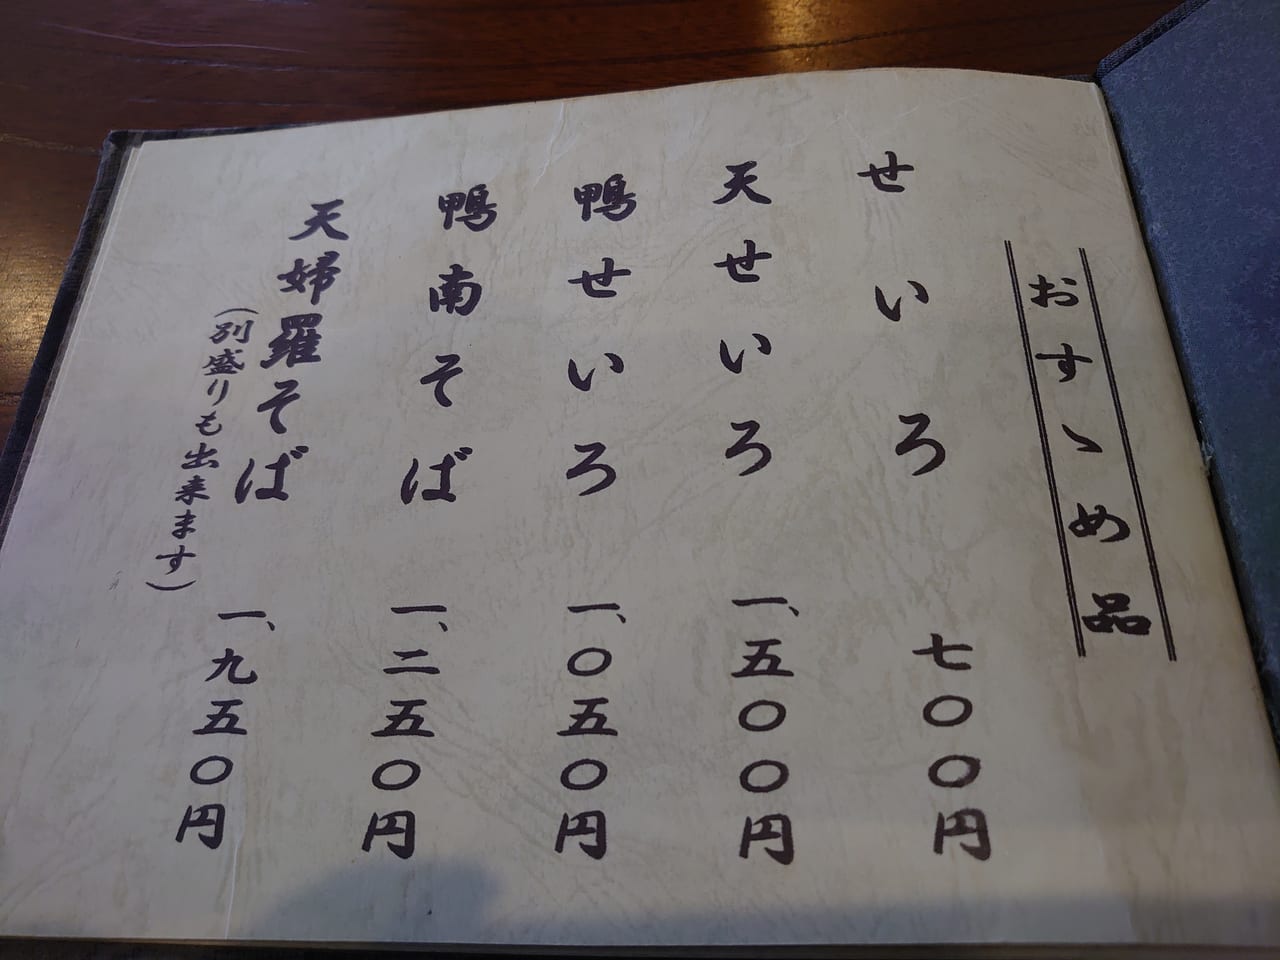 おすゝめ品
せいろ 七〇〇円
天せいろ 一、五〇〇円
鴨せいろ 一、〇五〇円
鴨南そば 一、二五〇円
天婦羅そば 一、九五〇円
(別盛りも出来ます)